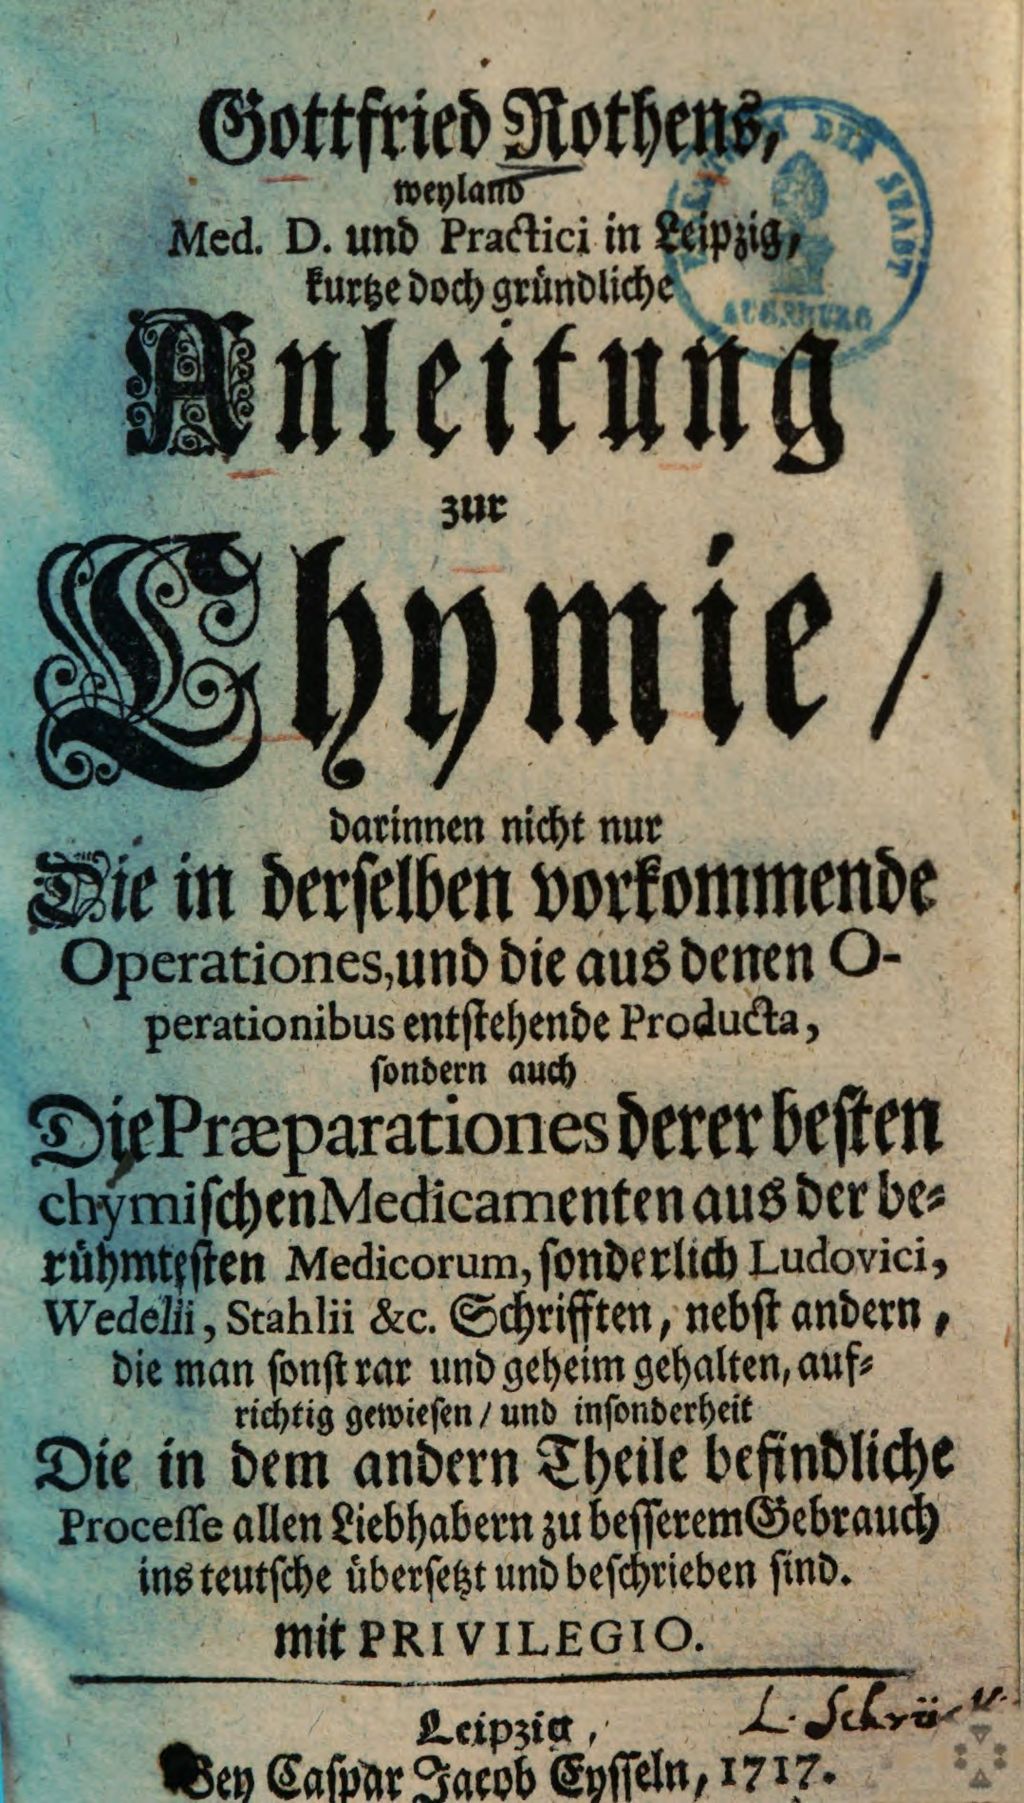 Gottfried Rothens,
weyland
Med. D. und Practici in Leipzig,
kurtze doch gründliche
Anleitung
zur
Chymie /
darinnen nicht nur
Die in derselben vorkommende
Operationes, und die aus denen O-
perationibus entstehende Producta,
sondern auch
Die Præparationes derer besten
chymischen Medicamenten aus der be-
rühmtesten Medicorum, sonderlich Ludovici,
Wedelii, Stahlii &c. Schrifften, nebst andern,
die man sonst rar und geheim gehalten, auf-
richtig gewiesen / und insonderheit
Die in dem andern Theile befindliche
Processe allen Liebhabern zu besserem Gebrauch
ins teutsche übersetzt und beschrieben sind.
mit PRIVILEGIO.
L. Schröck
Leipzig,
Bey Caspar Jacob Eysseln, 1717.
DER STADT
AUGSBURG